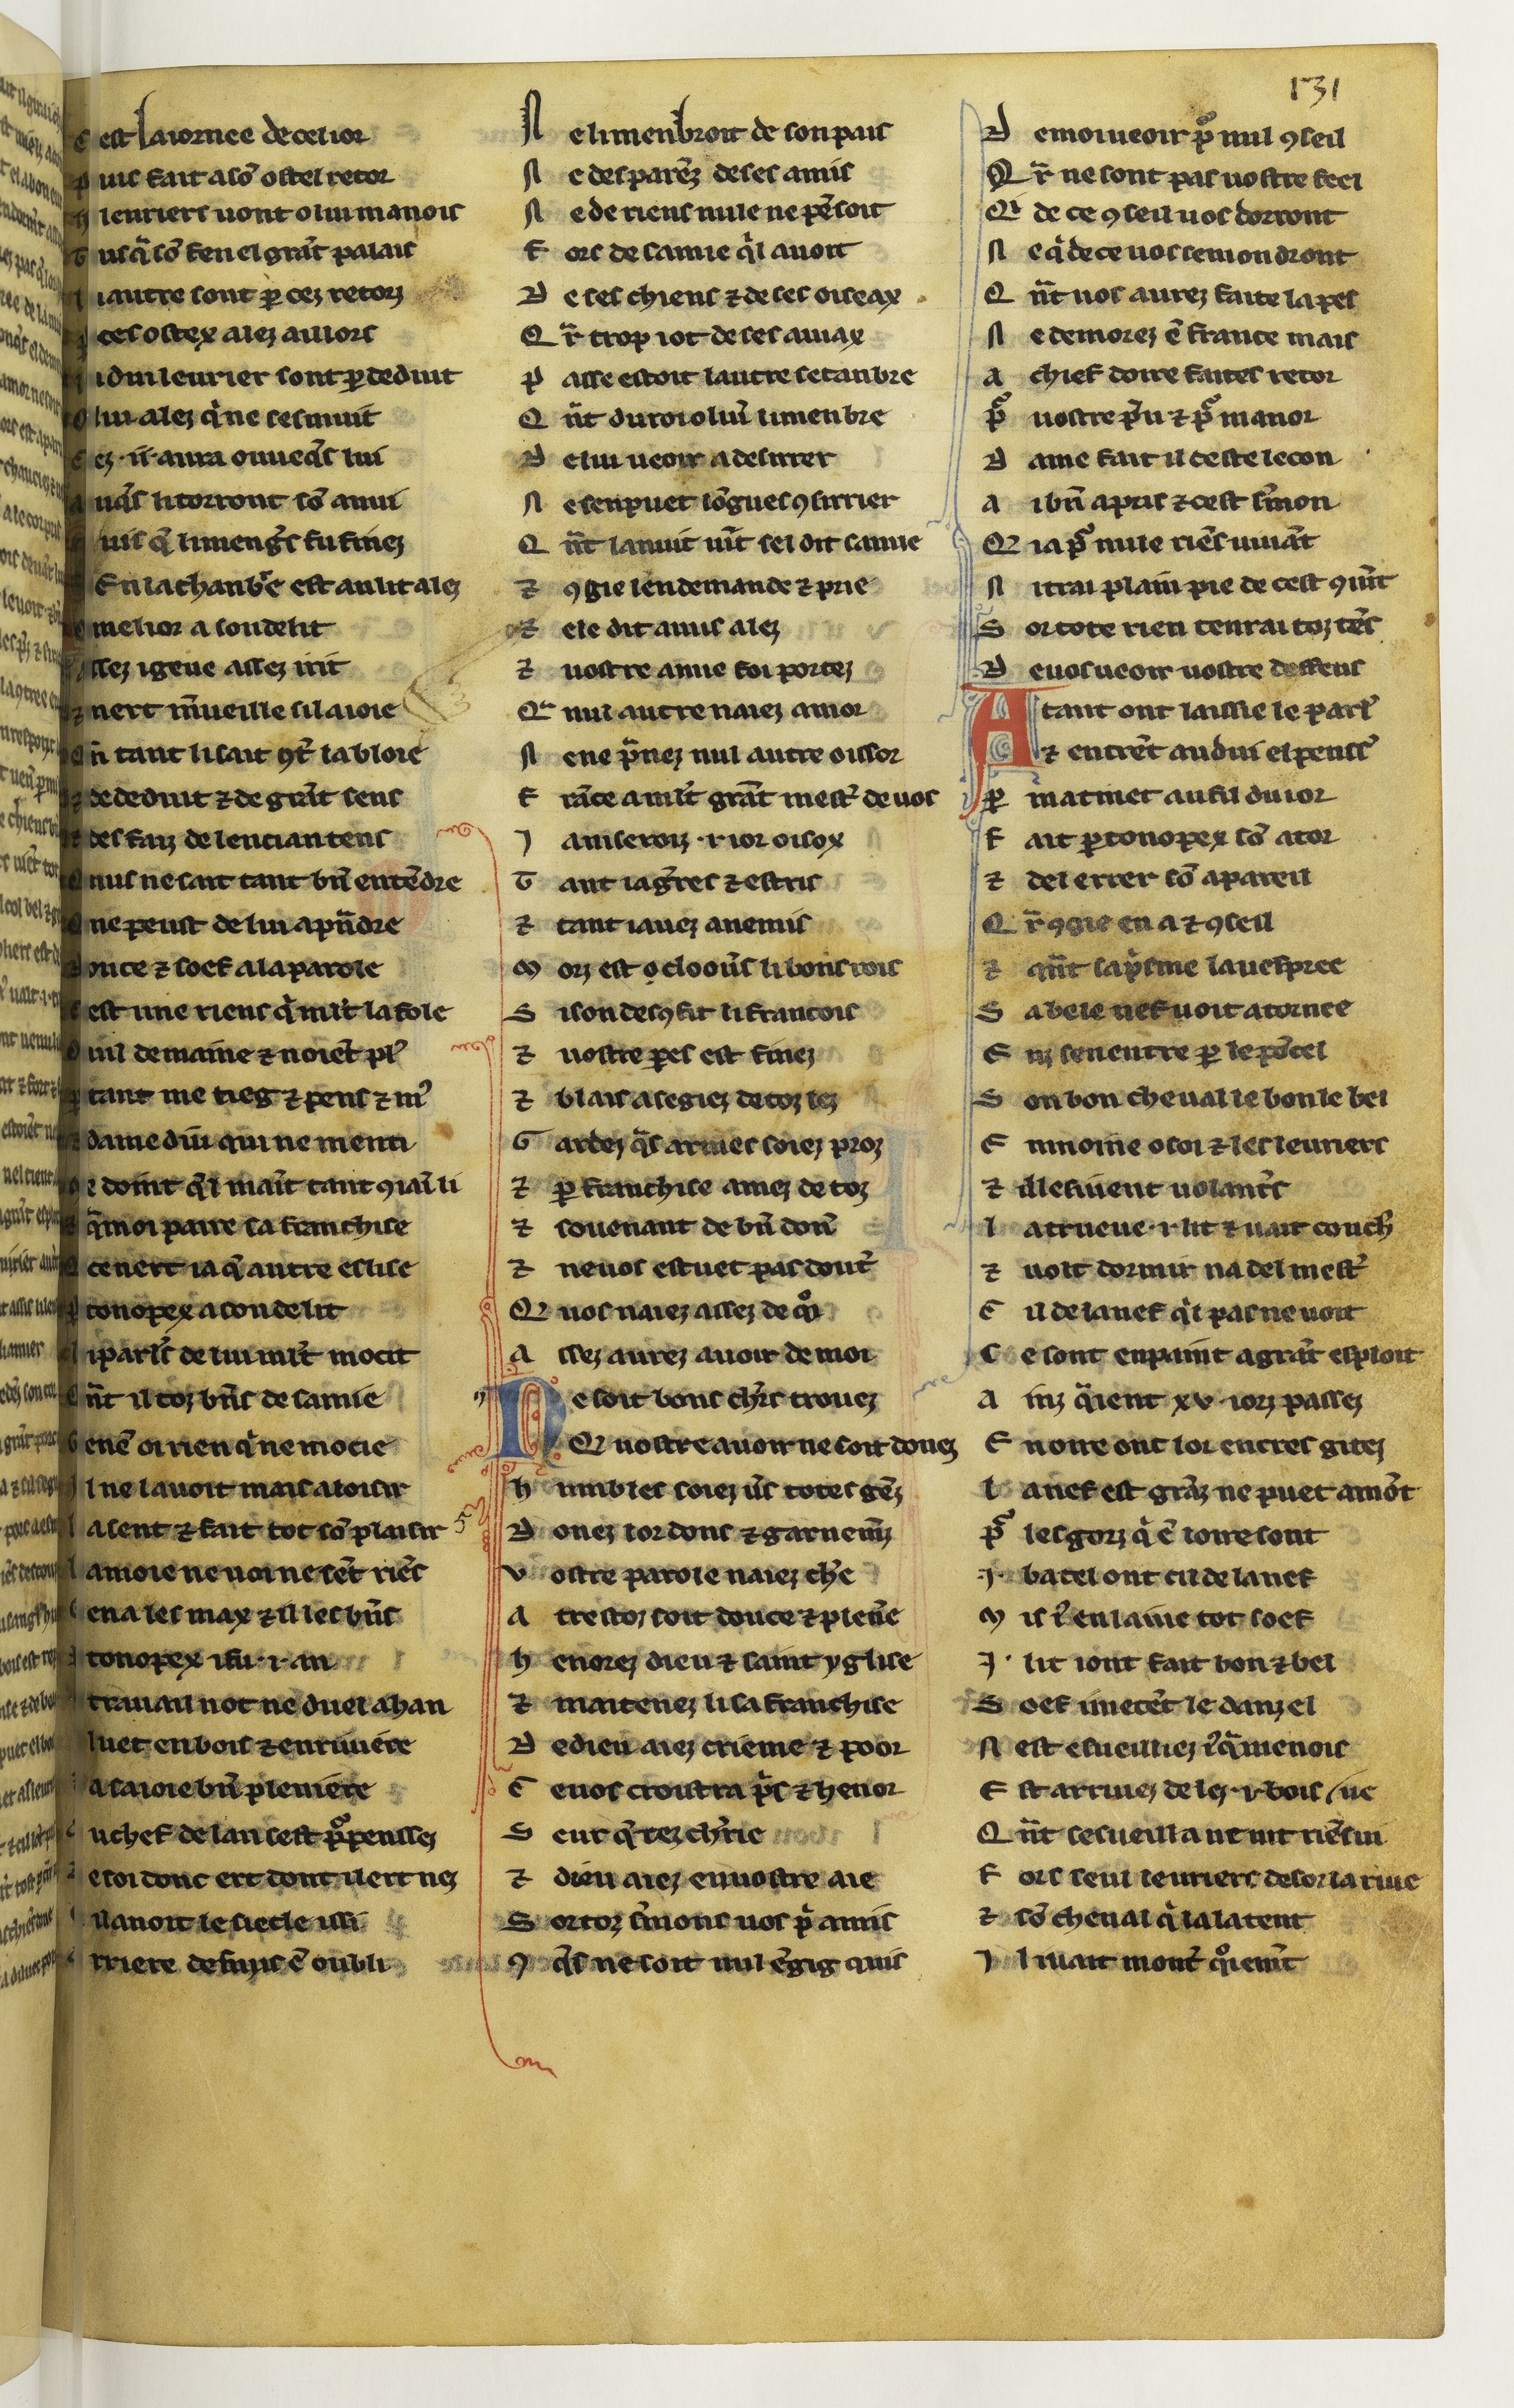 131
C est la iornee de celior
P uis fait a sõ ostel retor
H leuriers uont o lui manois
T usq̃ sõ fen el grãt palais
L i autre sont p cez retorz
A ces ostex alez aillors
L i dui leurier sont p deduit
O lui alez q̃ ne ses muit
C ez .ii. aura ouueq̃s lui
A uq̃s li torront sõ anui
P uis q̃ li mengiers fu finez
En la chanbre est au lit alez
E melior a son delit
A ssez i geue assez i rit
Z nert m̃ueille sil a ioie
Q ñ tant li sait 9t̃ la bloie
Z de deduit z de grãt sens
Z des faiz de lencian tens
Q nus ne sait tant bñ entẽdre
Q ne peust de lui apñdre
D ouce z soef a la parole
C est une riens q̃ mlt la fole
D uil demaine z noiẽt pl'
P tant me tieg z pens z m'
Z dame diu qui ne menti
Me doint q̃l maĩt tant 9 ian li
Z q̃ moi paire sa franchise
Q ce nert ia q̃ autre eslise
P tonopex a son delit
L i parl's de lui mlt mocit
Q ñt il toz bñs de samie
G enẽ oi rien q̃ ne mocie
I l ne la uoit mais a loisir
L a sent z fait tot sõ plaisir
L a moie ne uoi ne sẽt riẽs
G en a les max z il les bñs
P tonopex i fu .i. an
T rauail not ne duel ahan
D luet en bois z en riuiere
Z a sa ioie bñ pleniere
A uchef de lan sest p̃pensez
D e soi donc ert dont il ert nez
Q il auoit le siecle issi
A rriere de fuiis ẽ oubli
N e li menbroit de son pais
N e des parẽz de ses amis
N e de riens nule ne pẽsoit
F ors de samie q̃l auoit
D e ses chiens z de ses oiseax
Q r̃ trop iot de ses auiax
P asse estoit lautre setanbre
Q ñt du roi oluĩ li menbre
D e lui ueoir a desirrer
N e sen puet lõgues 9sirrier
Q ñt la nuit uĩt sel dit samie
Z 9gie len demande z prie
Z ele dit amis alez
Z uostre amie foi portez
Q nul autre naiez amor
N e ne p̃nez nul autre oissor
F rãce a mlt grãt mest' de uos
I a i seroiz .i. ior oisox
T ant i a g̃res z estris
Z tant i auez anemis
M orz est o cloouis li bons rois
S i son des9fit li francois
Z uostre peres est finez
Z blais asegiez de toz lez
G ardez q̃s armes soiez proz
Z p franchise amez de toz
Z souenant de bñ donñ
Z ne uos estuet pas dout'
Q uos naiez assez de q̊i
A ssez aurez auoir de moi
N e soit bons ch'rs trouez
Q uostre auoir ne soit donez
H unbles soiez ũs totes gẽz
D onez lor dons z garnemẽz
V ostre parole naiez ch'e
A trestoz soit douce z pleñe
H enorez dieu z saint yglise
Z maitenez li sa franchise
D e dieu aiez crieme z poor
C e uos croistra p̃s z henor
S eur q̃ rez ch'rie
Z dieu aiez en uostre aie
S or toz s'mons uos p̃ amis
9 q̃s ne soit nul ẽgig quis
D e moi ueoir p̃ nul 9seil
Q r̃ ne sont pas uostre feel
Q de ce 9seil uos dorront
N e q̃ de ce uos semondront
Q ñt uos aurez faite la pes
N e demorez ẽ france mais
A chief doire faites retor
P̃ uostre p̃u z p̃ manor
D ame fait il ceste lecon
A i bñ apris z cest s'mon
Q ia p̃ nule riẽs uiuãt
N itrai plain pie de cest 9uũt
S or tote rien tenrai toz tẽs
D e uos ueoir uostre deffens
A tant ont laissie le parl'
Z entrẽt andui el penss'
P matinet au fil du ior
F ait p tonopex sõ ator
Z del errer sõ apareil
Q r̃ 9gie en a z 9seil
Z quãt sap̃sme la uespree
S a bele nef uoit atornee
E nz sen entre p le põcel
S on bon cheual le bon le bel
E nmoine o soi z les leuriers
Z il lesiuent uolantẽs
I l a trueue .i. lit z uait couch'
Z uoit dormir na del mest'
C il de la nef q̃l pas ne uoit
C e sont enpaint a grãt esploit
A inz q̃ ient xv. iorz passez
E n oire ont lor encres gitez
L a nef est grãz ne puet amõt
P̃ les gorz q̃ ẽ loire sont
.I. batel ont cil de la nef
M is r̃ en laiue tot soef
.I. lit i ont fait bon z bel
S oef i metẽt le danzel
N est esueilliez r̃ q̃ menois
E st arriuez delez .i. bois
Q ñt sesueilla ne uit riẽs ui ue
F ors seul leuriers desor la riue
Z sõ cheual q̃ la latent
I l i uait mont' q̊iemt